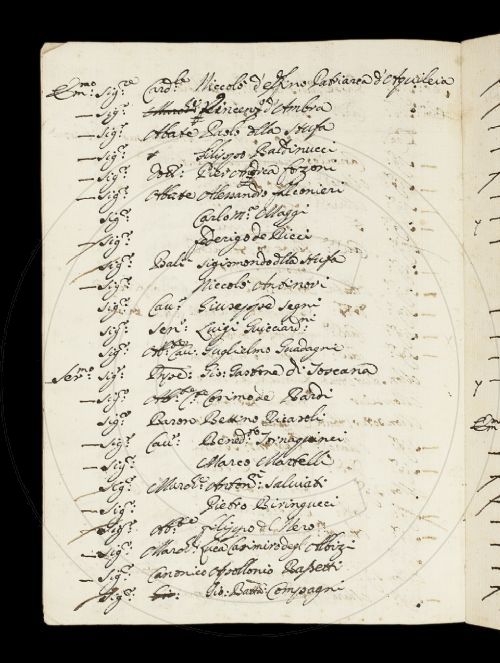 Em:mo Sig:re Card:le Niccolò d'Elfino Patriarca d'Aquileia
— Sig:r Vincenzo d'Ambra
— Sig:r Abate Paolo della Stufa
— Sig:r Filippo Baldinucci
— Sig:r Dott: Pier Andrea Forzoni
— Sig:r Abate Alessandro Falconieri
Sig:r Carlo M:a Maggi
— Sig:r Federigo de Ricci
— Sig:r Balì Sigismondo della Stufa
— Sig:r Niccolò Antinori
Sig:r Cav: Giuseppe Segni
Sig:r Sen: Luigi Guicciard:ni
Sig:r Ab:e Cav: Guglielmo Guadagni
Ser:mo Sig:r Prpe: Gio: Gastone di Toscana
— Sig:r Ab:e Cosimo de Bardi
Sig:r Barone Bettino Ricasoli
— Sig:r Cav: Bened:to Tornaquinci
— Sig:r Marco Martelli
— Sig:r March: Anton: Salviati
— Sig:r Pietro Biringucci
— Sig:r Ab:te Filippo del Nero
— Sig:r March: Luca Casimiro degl'Albizi
— Sig:r Canonico Apollonio Bassetti
— Sig:r Gio: Batta: Compagni